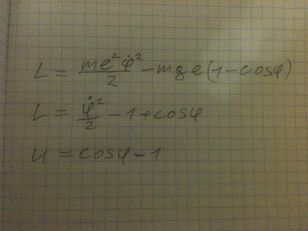 L = me²φ̇²/2 - mge(1-cosφ)
L = φ̇²/2 - 1 + cosφ
U = cosφ - 1